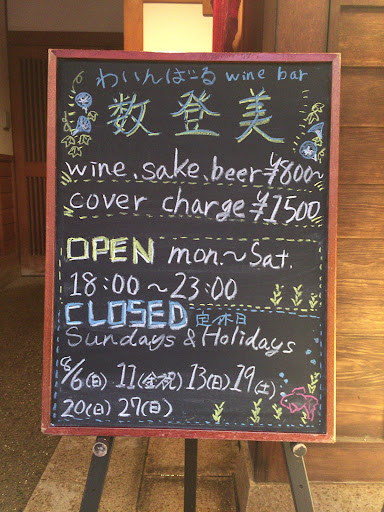 わいんばーる wine bar
数登美
wine、sake、beer ¥800~
cover charge ¥1500
OPEN mon.~Sat.
18:00~23:00
CLOSED 定休日
Sundays & Holidays
8/6(日) 11(金祝) 13(日) 19(土)
20(日) 27(日)